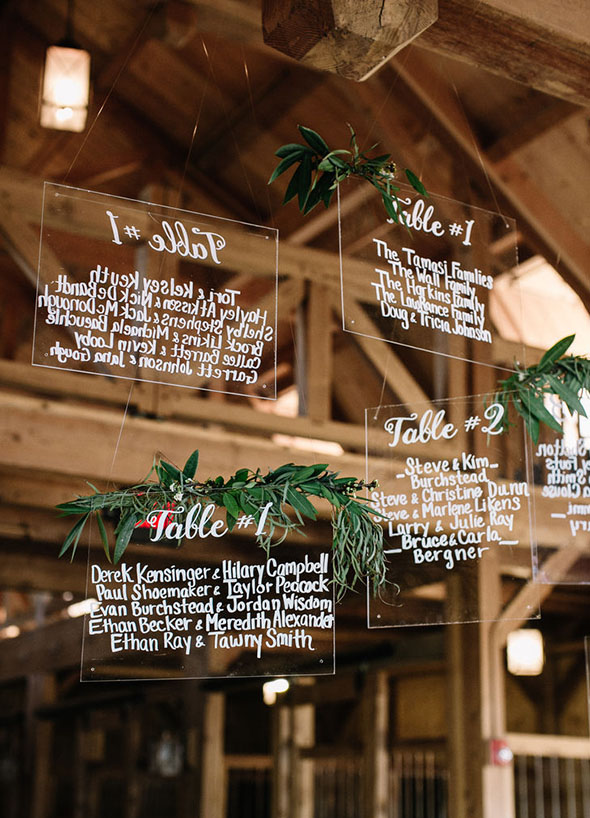 Table #1
Tori & Kelsey Keuth
Hayley Atkisson & Nick DeBandt
Shelby Stephens & Jack McDonough
Brock Likins & Michaela Baeuchle
Callee Barrett & Kevin Looby
Garrett & Jana Gough
Table #1
The Tamasi Families
The Wall Family
The Harkins Family
The Lawrence Family
Doug & Tricia Johnson
Table #2
Steve & Kim
Burchstead
Steve & Christine Dunn
Steve & Marlene Likens
Larry & Julie Ray
Bruce & Carla
Bergner
Table #1
Derek Kensinger & Hilary Campbell
Paul Shoemaker & Taylor Pedcock
Evan Burchstead & Jordan Wisdom
Ethan Becker & Meredith Alexander
Ethan Ray & Tawny Smith
Fouts
Clouse